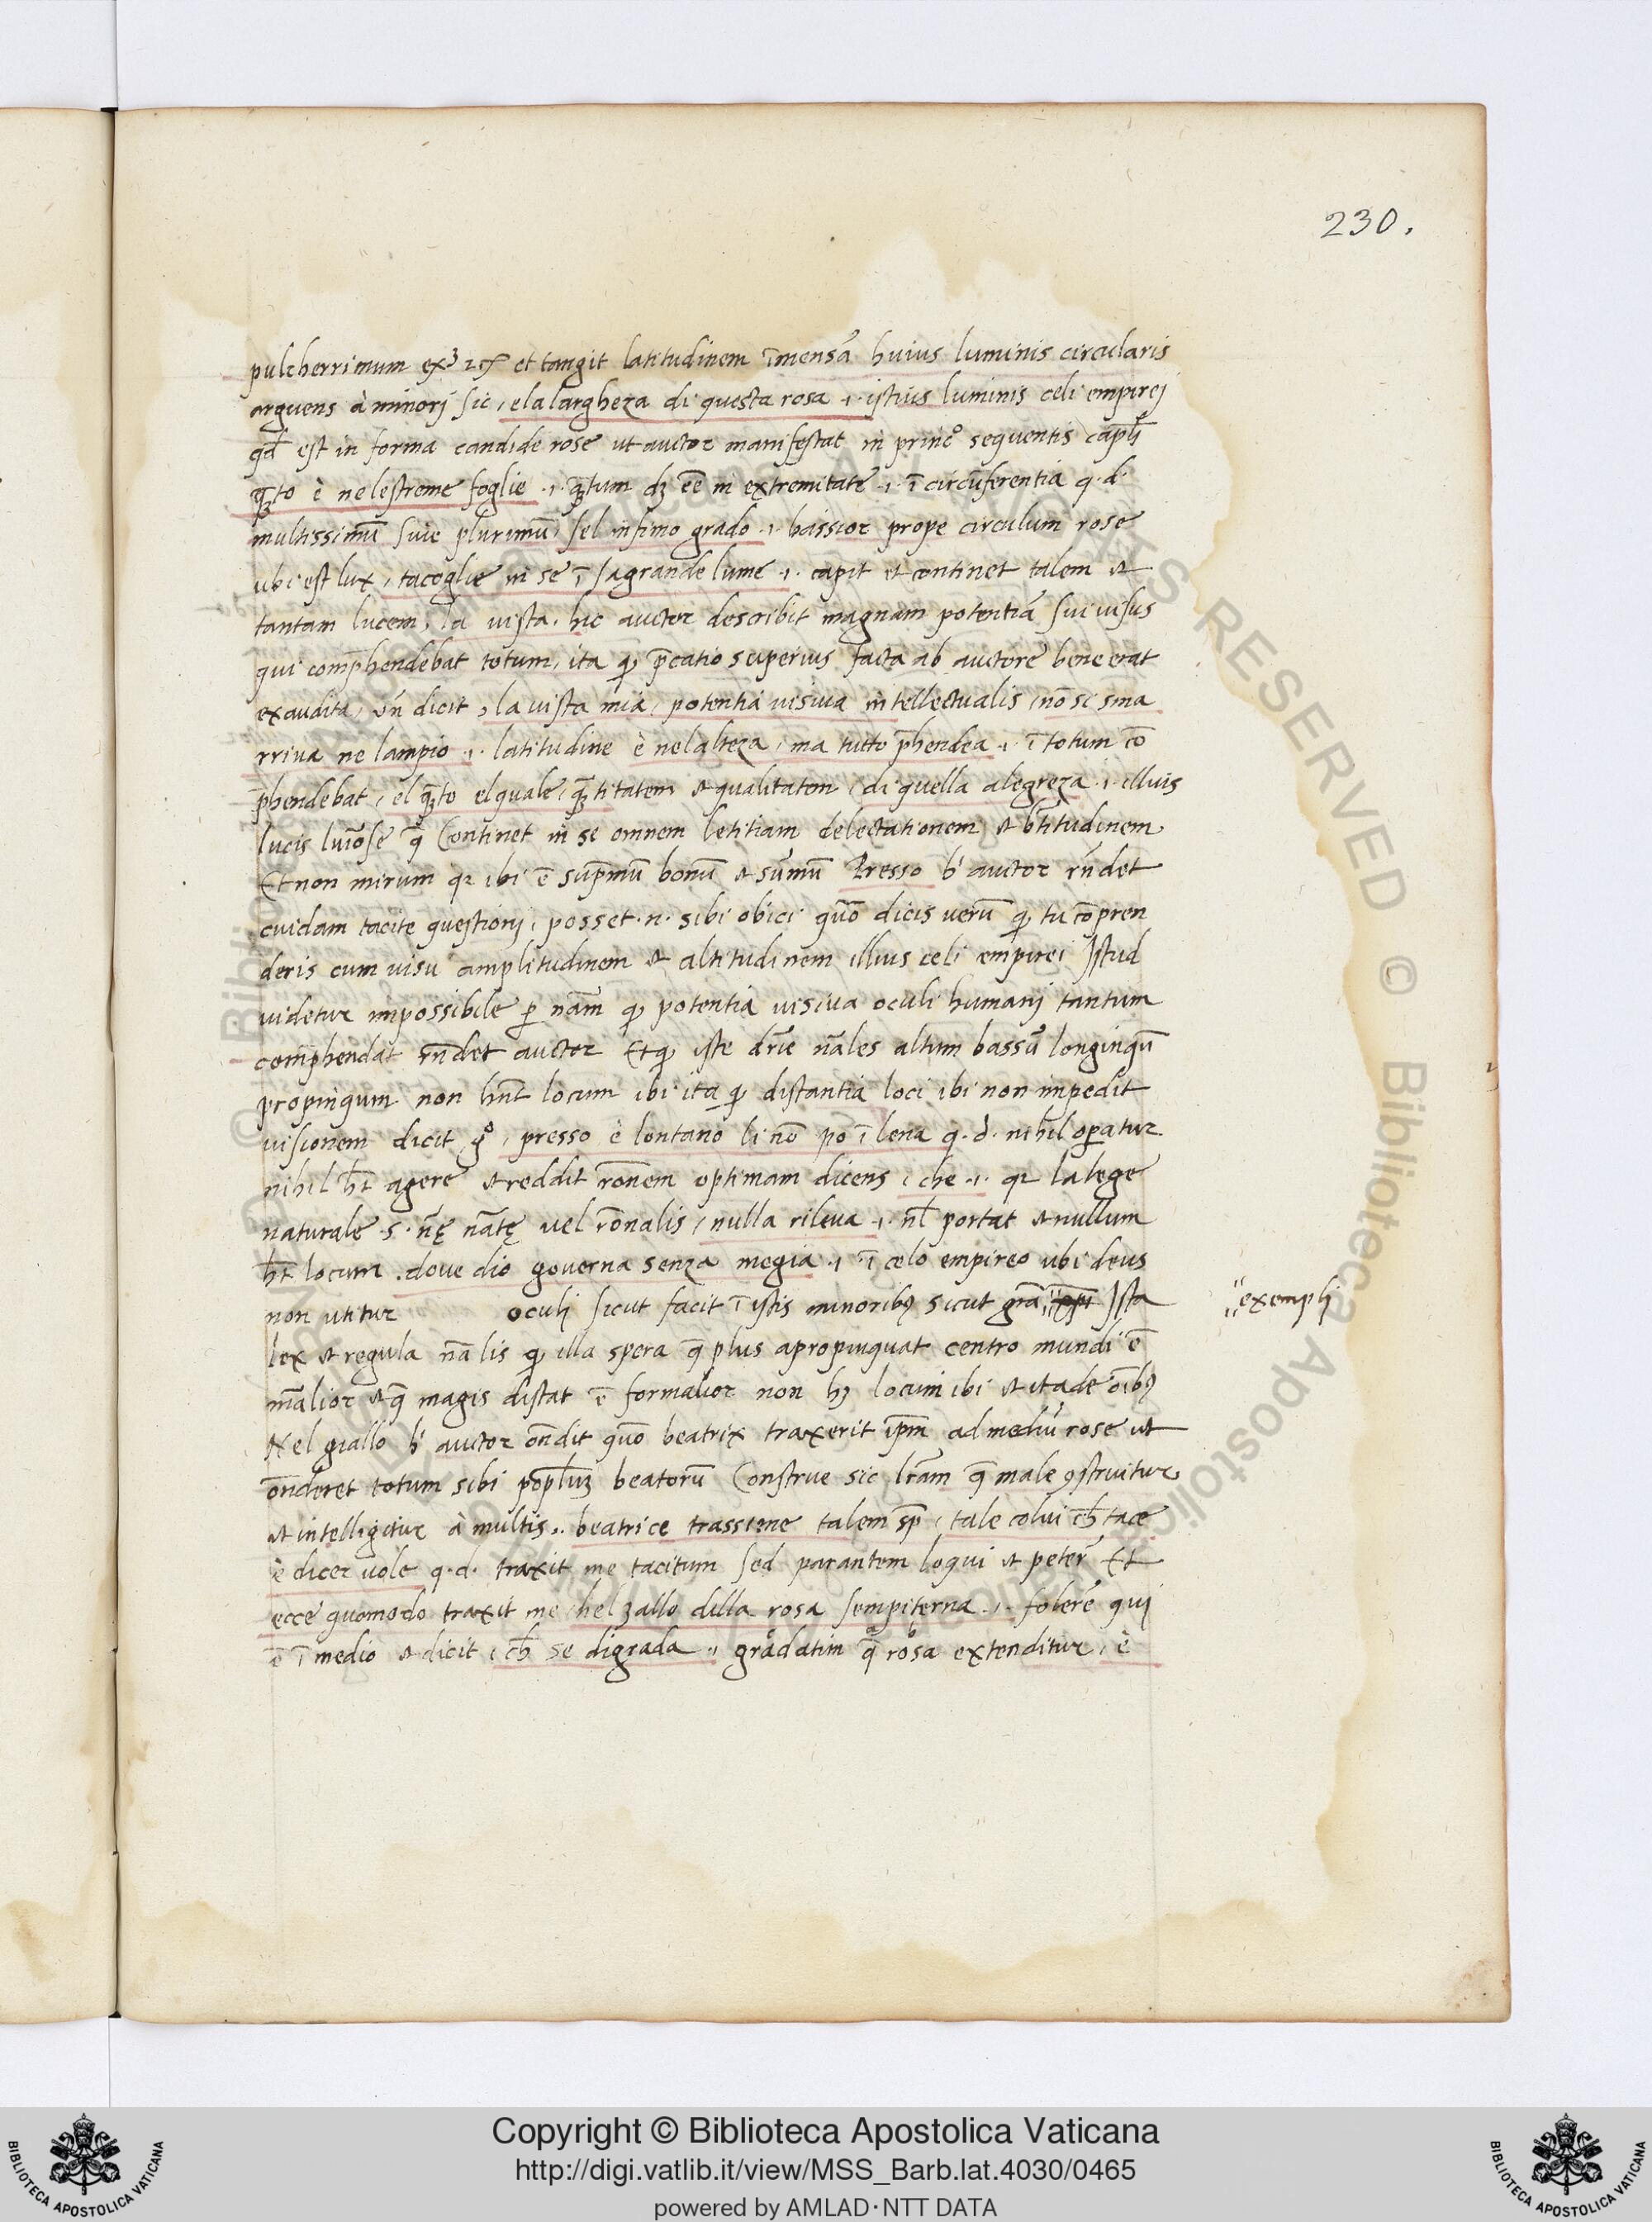 230.
pulcherrimum et tangit latitudinem īmensā huius luminis circularis
arguens à minorj sic, e la largheza di questa rosa .i. istius luminis celi empirej
qd est in forma candide rose ut auctor manifestat in princº sequentis capli
to è ne lestreme foglie .i. tum dz eē in extremitate .i. ī circūferentia q.d.
multissimū sive plurimū, sel infimo grado .i. bassior prope circulum rose
ubi est lux, racoglie in se ī sagrande lume .i. capit et continet talem et
tantam lucem, la vista, hic auctor describit magnam potentiā sui visus
qui comp̄hendebat totum, ita q p̄catio superius facta ab auctore bene erat
exaudita, ūn dicit, la vista mia, potentia visiva intellectualis, nō si sma
rriva ne lampio .i. latitudine è nelalteza, ma tutto p̄hendea .i. ī totum cō
p̄hendebat, el to el quale, titatem et qualitatem, di quella alegreza .i. illius
lucis q̄ Continet in se omnem letitiam delectationem et btitudinem
Et non mirum qr ibi ē sup̄mū bonū et sūmū Presso h auctor rn̄det
cuidam tacite questionj, posset .n. sibi obici quō dicis verū q tu cōpren
deris cum visu amplitudinem et altitudinem illius celi empirei Istud
videtur impossibile p nām q potentia visiva oculi humanj tantum
comp̄hendat rn̄det auctor Et q iste dr̄ie nāles altum bassū longinqū
propinqum non hn̄t locum ibi ita q distantia loci ibi non impedit
visionem dicit gº, presso è lontano li nō po ī lena q.d. nihil opatur
nihil ht agere et reddit rōnem optimam dicens, che .i. qr la lege
naturale .s. nāte vel rōnalis, nulla rileva .i. nl portat et nullum
ht locum. dove dio governa senza megia .i. ī celo empireo ubi deus
non utitur oculj sicut facit ī istis minoribꝫ sicut grā Ista
"exemplj
lex et regula nālis q illa spera q̄ plus apropinquat centro mundi ē
mālior et q̄ magis distat ē formalior non hz locum ibi et ita de oībꝫ
Nel giallo h auctor on̄dit quō beatrix traxerit ip̄m ad mediū rose ut
on̄deret totum sibi poplum beatorū Construe sic lrām q̄ male 9struitur
et intelligitur à multis.. beatrice trassime talem sp, tale colui ch tace
è dicer vole q.d. traxit me tacitum sed parantem loqui et peter Et
ecce quomodo traxit me hel zallo della rosa sempiterna .i. folere quj
ē ī medio et dicit, ch se digrada .i. gradatim q̄ rosa extenditur, è
Copyright © Biblioteca Apostolica Vaticana
http://digi.vatlib.it/view/MSS_Barb.lat.4030/0465
powered by AMLAD·NTT DATA
BIBLIOTECA APOSTOLICA VATICANA
BIBLIOTECA APOSTOLICA VATICANA